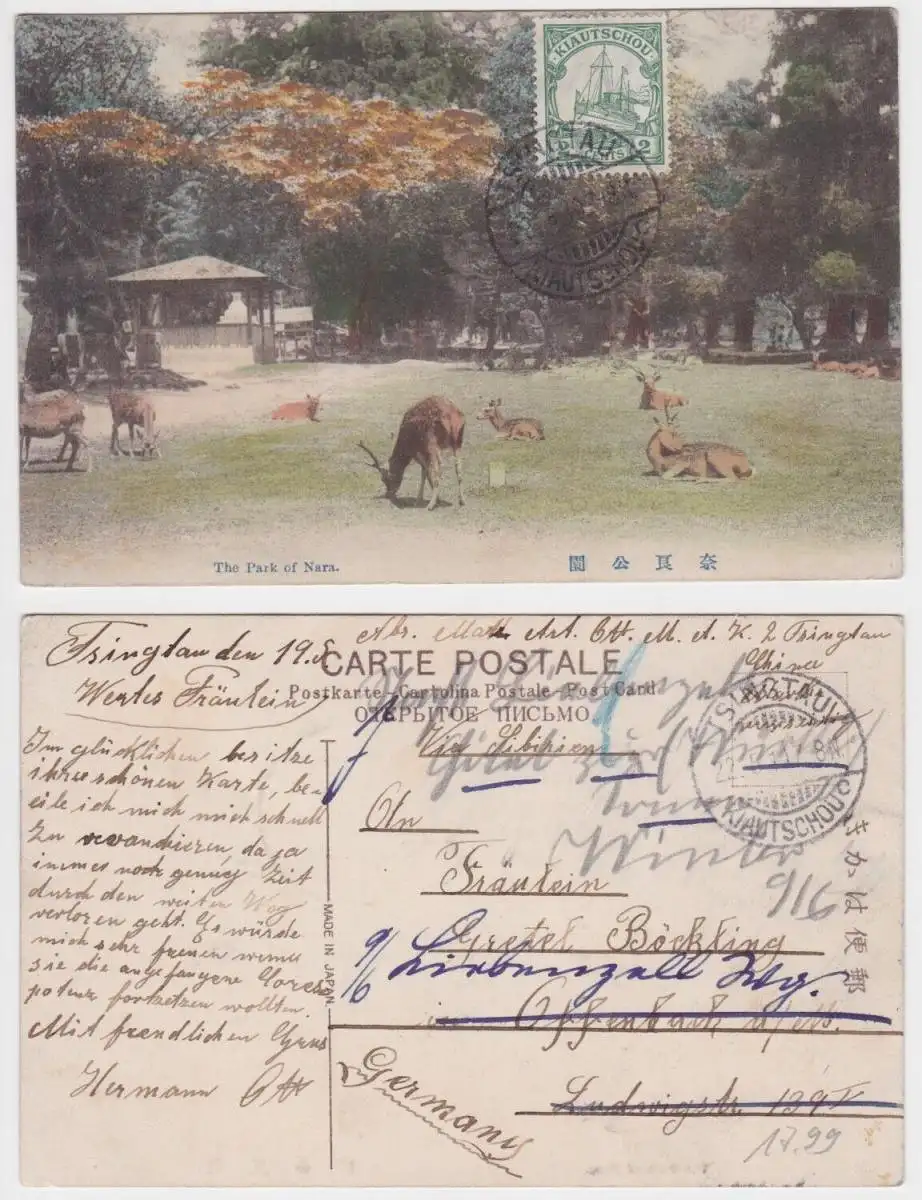 KIAUTSCHOU
2 CENTS 2
TSINGTAU
KIAUTSCHOU
The Park of Nara.
園公良奈
Abs. Matr. Art. Ott. M. A. K. 2 Tsingtau
China
Tsingtau den 19.
CARTE POSTALE
Postkarte-Cartolina Postale-Post Card
ОТКРЫТОЕ ПИСЬМО
Wertes Fräulein
Im glücklichen besitze
ihrer schönen Karte, be-
eile ich mich mich schnell
zu revanchieren, da ja
immer noch genug Zeit
durch den weiten Weg
verloren geht. Es würde
mich sehr freuen wenn
sie die angefangene Cores-
potenz fortsetzen wollten.
Mit frendlichen Grus
Hermann Ott
MADE IN JAPAN
Via Sibirien
TSINGTAU
KIAUTSCHOU
きかは便郵
An
Fräulein
Gretel Böckling
Liebenzell Wbg.
Offenbach a/M.
Ludwigstr. 139 I
Germany
Winter
9/6
9/6
17.99